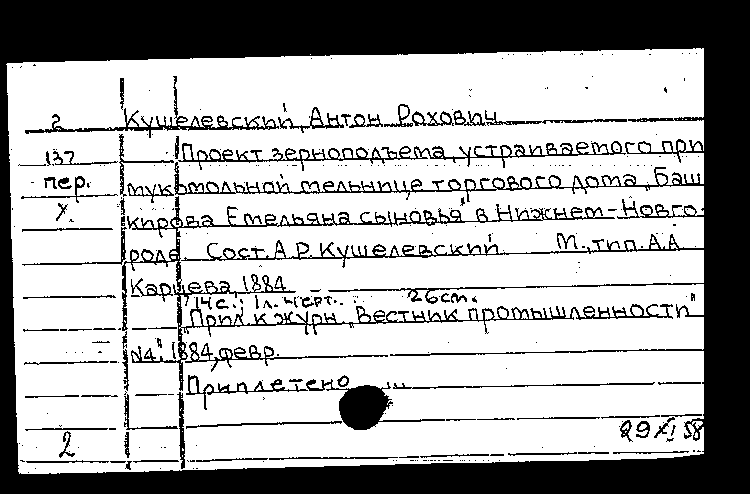 2 Кушелевский, Антон Рохович
137 Проект зерноподъема, устраиваемого при
пер. мукомольной мельнице торгового дома „Баш
х. кирова Емельяна сыновья" в Нижнем-Новго-
роде. Сост. А.Р. Кушелевский. М., тип. А.А.
Карцева, 1884
14 с.; 1 л. черт. 26 см.
Прил. к журн. „Вестник промышленности"
N4: 1884, февр.
Приплетено
2 29 XI 58